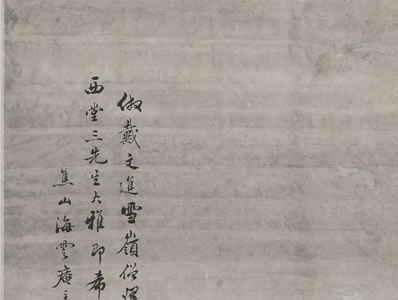 倣戴文進雪嶺俗
西堂三先生大雅即希
焦山海雲庵主